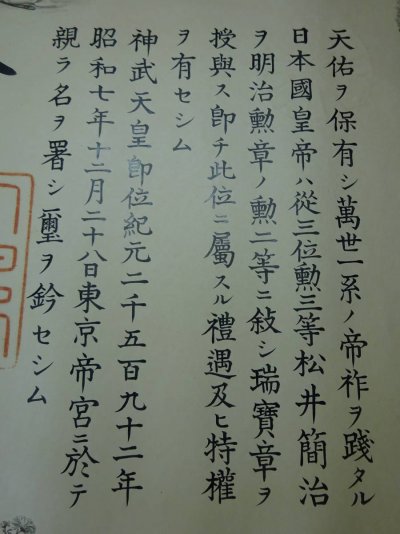 天佑ヲ保有シ萬世一系ノ帝祚ヲ踐タル
日本國皇帝ハ從三位勲三等松井簡治
ヲ明治勲章ノ勲二等ニ敍シ瑞寶章ヲ
授與ス卽チ此位ニ屬スル禮遇及ヒ特權
ヲ有セシム
神武天皇卽位紀元二千五百九十二年
昭和七年十二月二十八日東京帝宮ニ於テ
親ラ名ヲ署シ璽ヲ鈐セシム